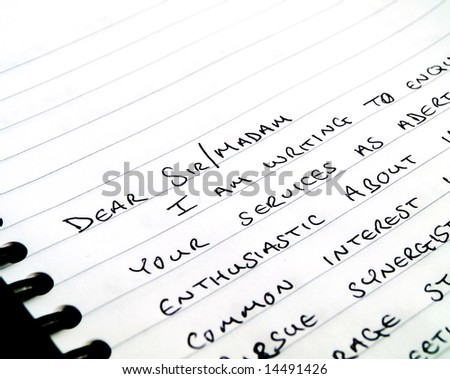 DEAR SIR/MADAM
I AM WRITING TO ENQU
YOUR SERVICES AS ADERT
ENTHUSIASTIC ABOUT
COMMON INTEREST
PURSUE SYNERGIST
RAGE ST
shutterstock.com · 14491426